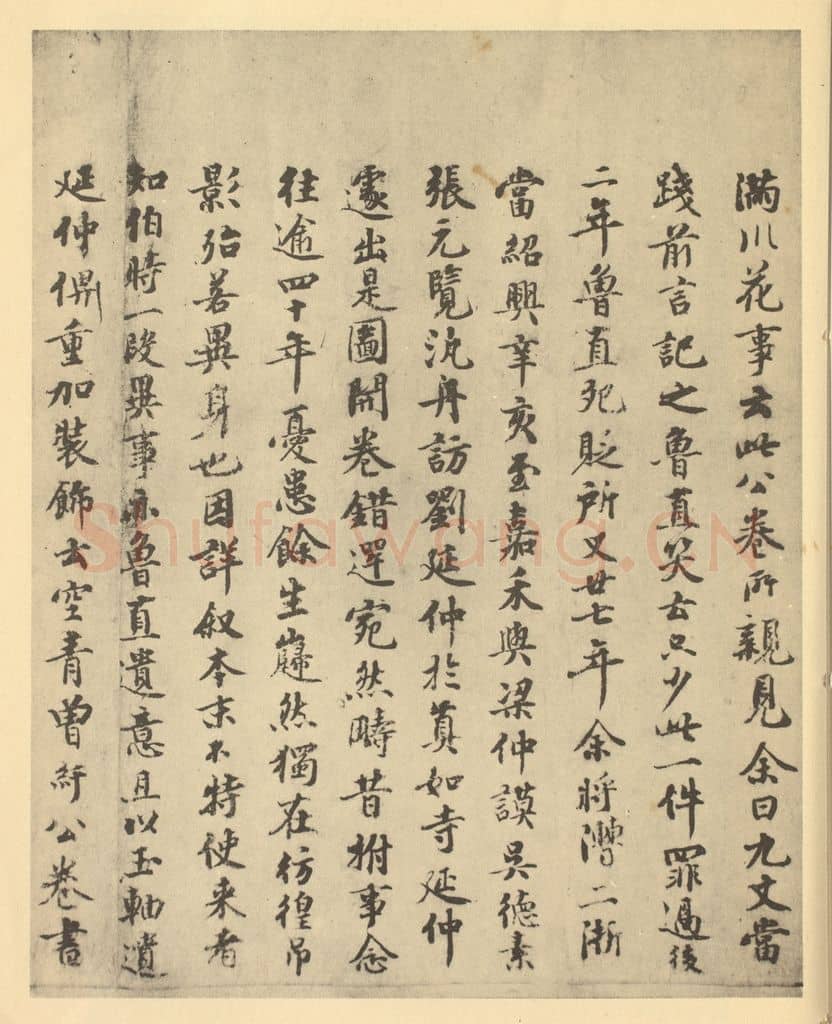 滿川花事云此公卷所親見余曰九丈當
踐前言記之魯直笑云只少此一件罪過後
二年魯直死貶所又廿七年余將漕二浙
當紹興辛亥至嘉禾與梁仲謨吳德素
張元覽汎舟訪劉延仲於真如寺延仲
遽出是圖開卷錯愕宛然疇昔拊事念
往逾四十年憂患餘生巋然獨在彷徨吊
影殆若異身也因詳叙本末不特使來者
知伯時一段異事亦魯直遺意且以玉軸遺
延仲俾重加裝飾云空青曾紆公卷書
Shufawang.CN